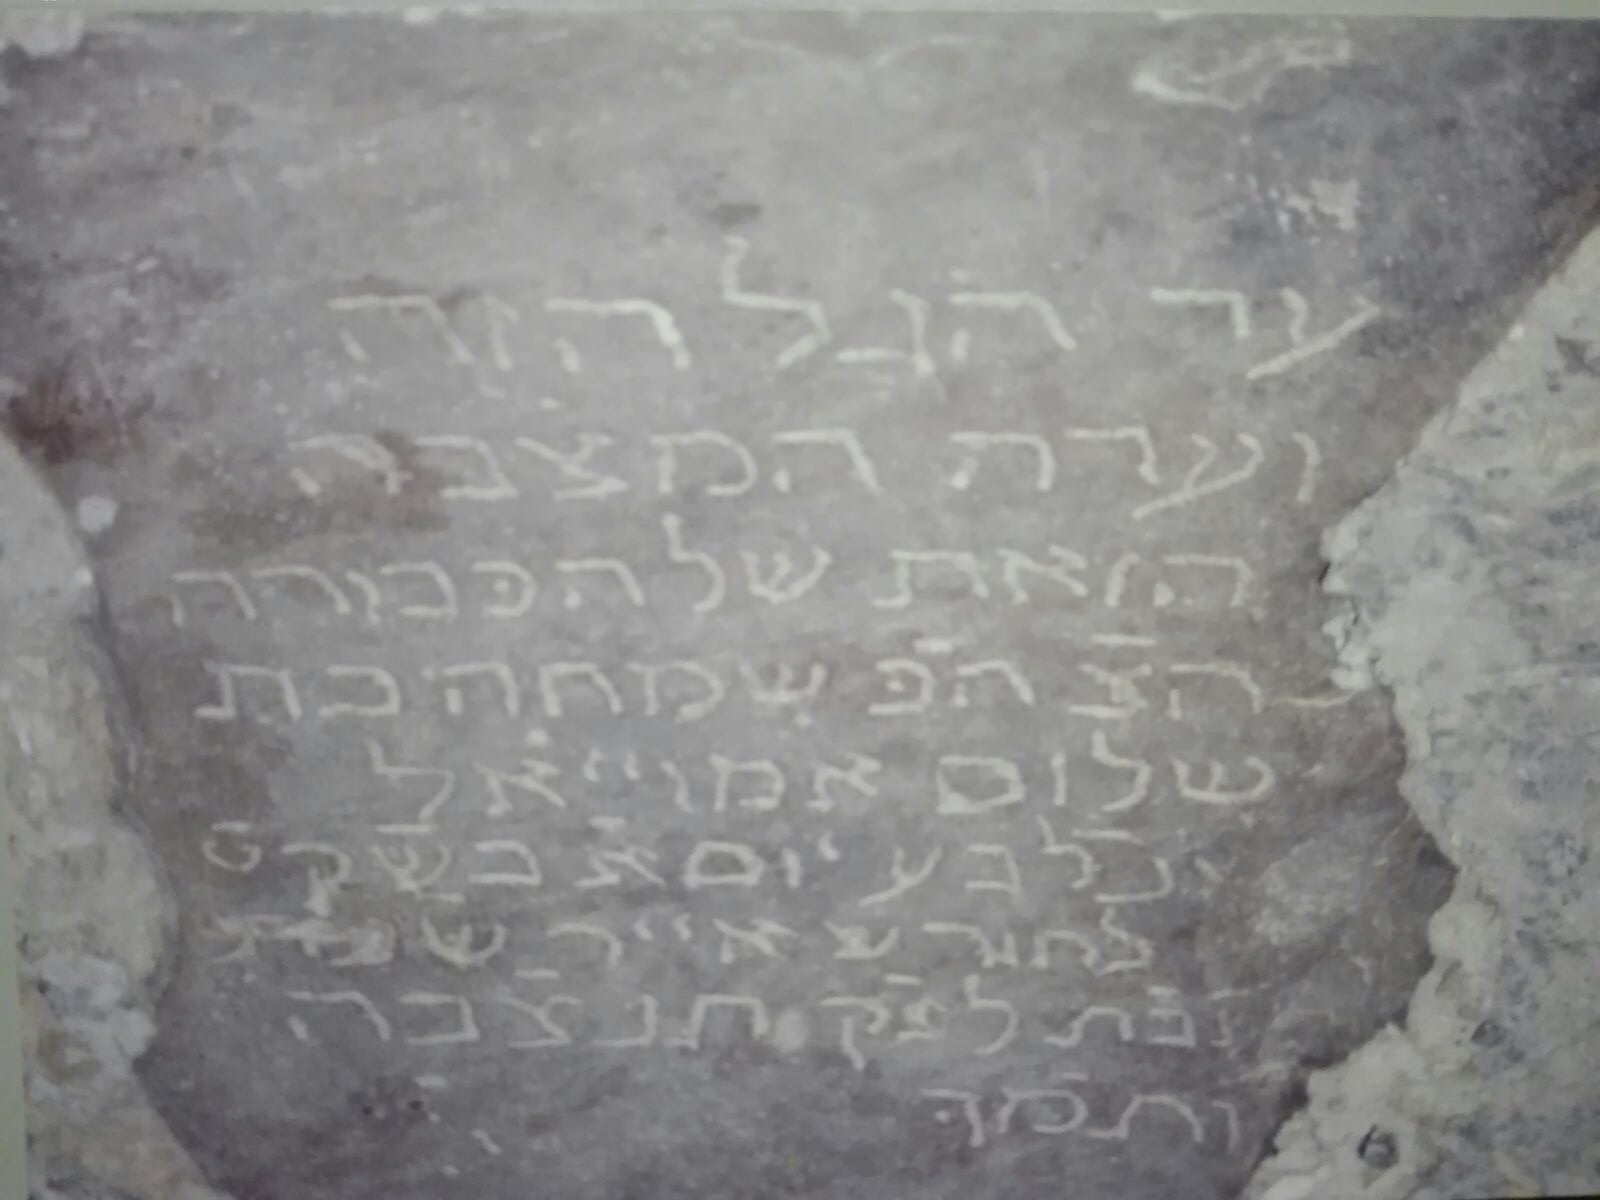 עד הגל הזה
ועדה המצבה
הזאת של הכבודה
הצ הפ שמחה בת
שלום אמוייאל
נלבע יום א בשק ט
לחודש אייר שנת
לפק תנצבה